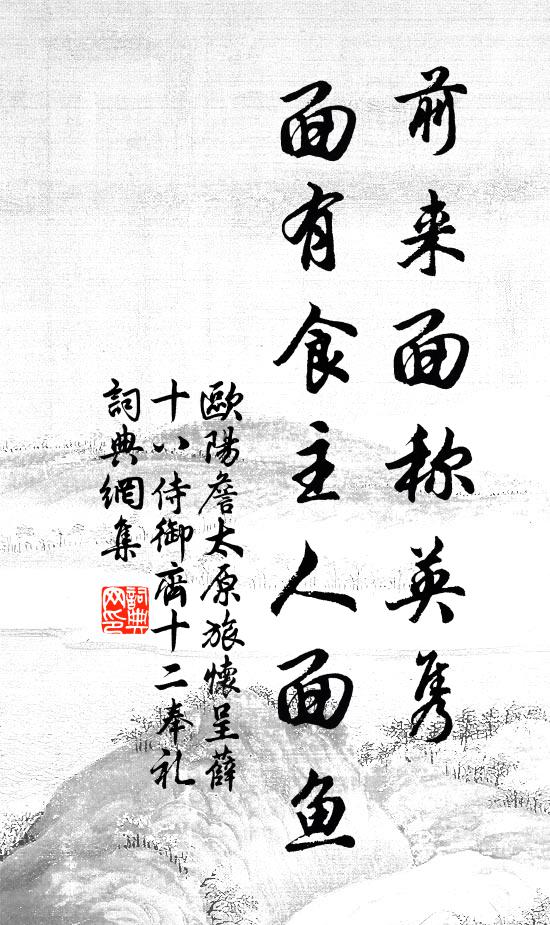 前来面称英隽
面有食主人面鱼
歐陽詹太原旅懷呈薛
十八侍御齊十二奉礼
詞典網集
詞典
网印